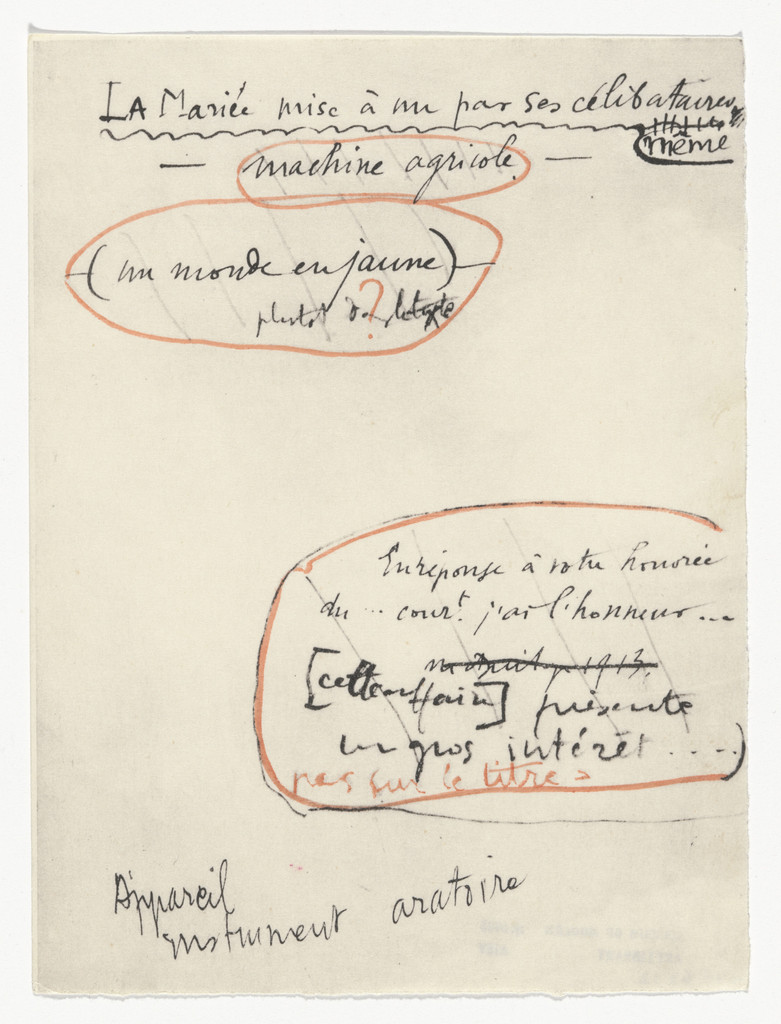 LA Mariée mise à nu par ses célibataires
même
— machine agricole —
(un monde en jaune)
plutôt ? texte
En réponse à votre honorée
du ... courᵗ. j'ai l'honneur ...
1913.
[cette affaire] présente
un gros intérêt ....)
pas sur le titre
Appareil
instrument aratoire